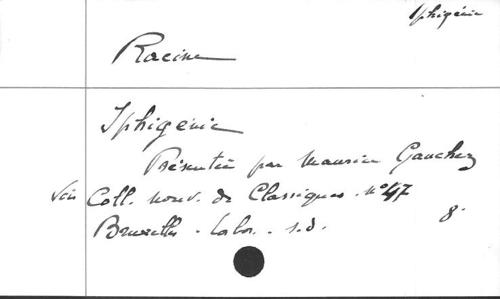 Iphigénie
Racine
Iphigénie
Présentée par Maurice Gauchez
Voir Coll. nouv. de Classiques. n° 47
Bruxelles. Labor. s.d.
8°